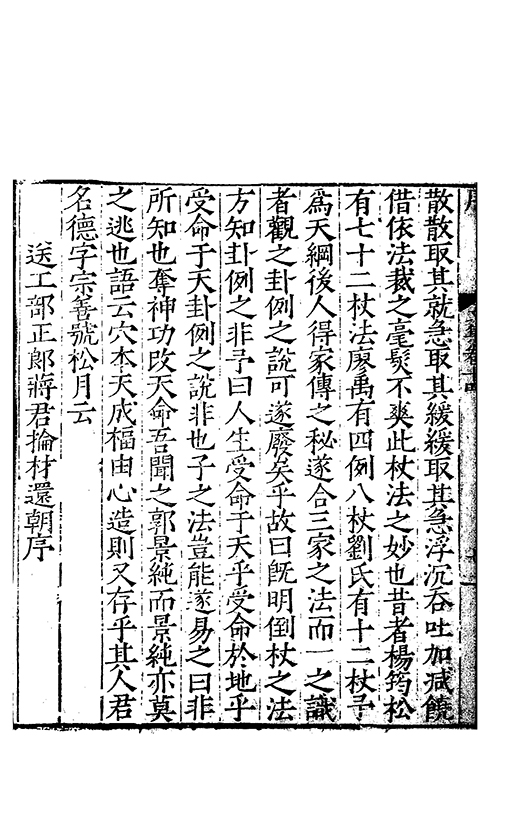 散散取其就急取其緩緩取其急浮沉吞吐加減饒
借依法裁之毫髮不爽此杖法之妙也昔者楊筠松
有七十二杖法廖禹有四例八杖劉氏有十二杖予
爲天綱後人得家傳之秘遂合三家之法而一之識
者觀之卦例之說可遂廢矣乎故曰旣明倒杖之法
方知卦例之非予曰人生受命于天乎受命於地乎
受命于天卦例之說非也子之法豈能遂易之曰非
所知也奪神功改天命吾聞之郭景純而景純亦莫
之逃也語云穴本天成福由心造則又存乎其人君
名德字宗善號松月云
送工部正郎蔣君掄材還朝序